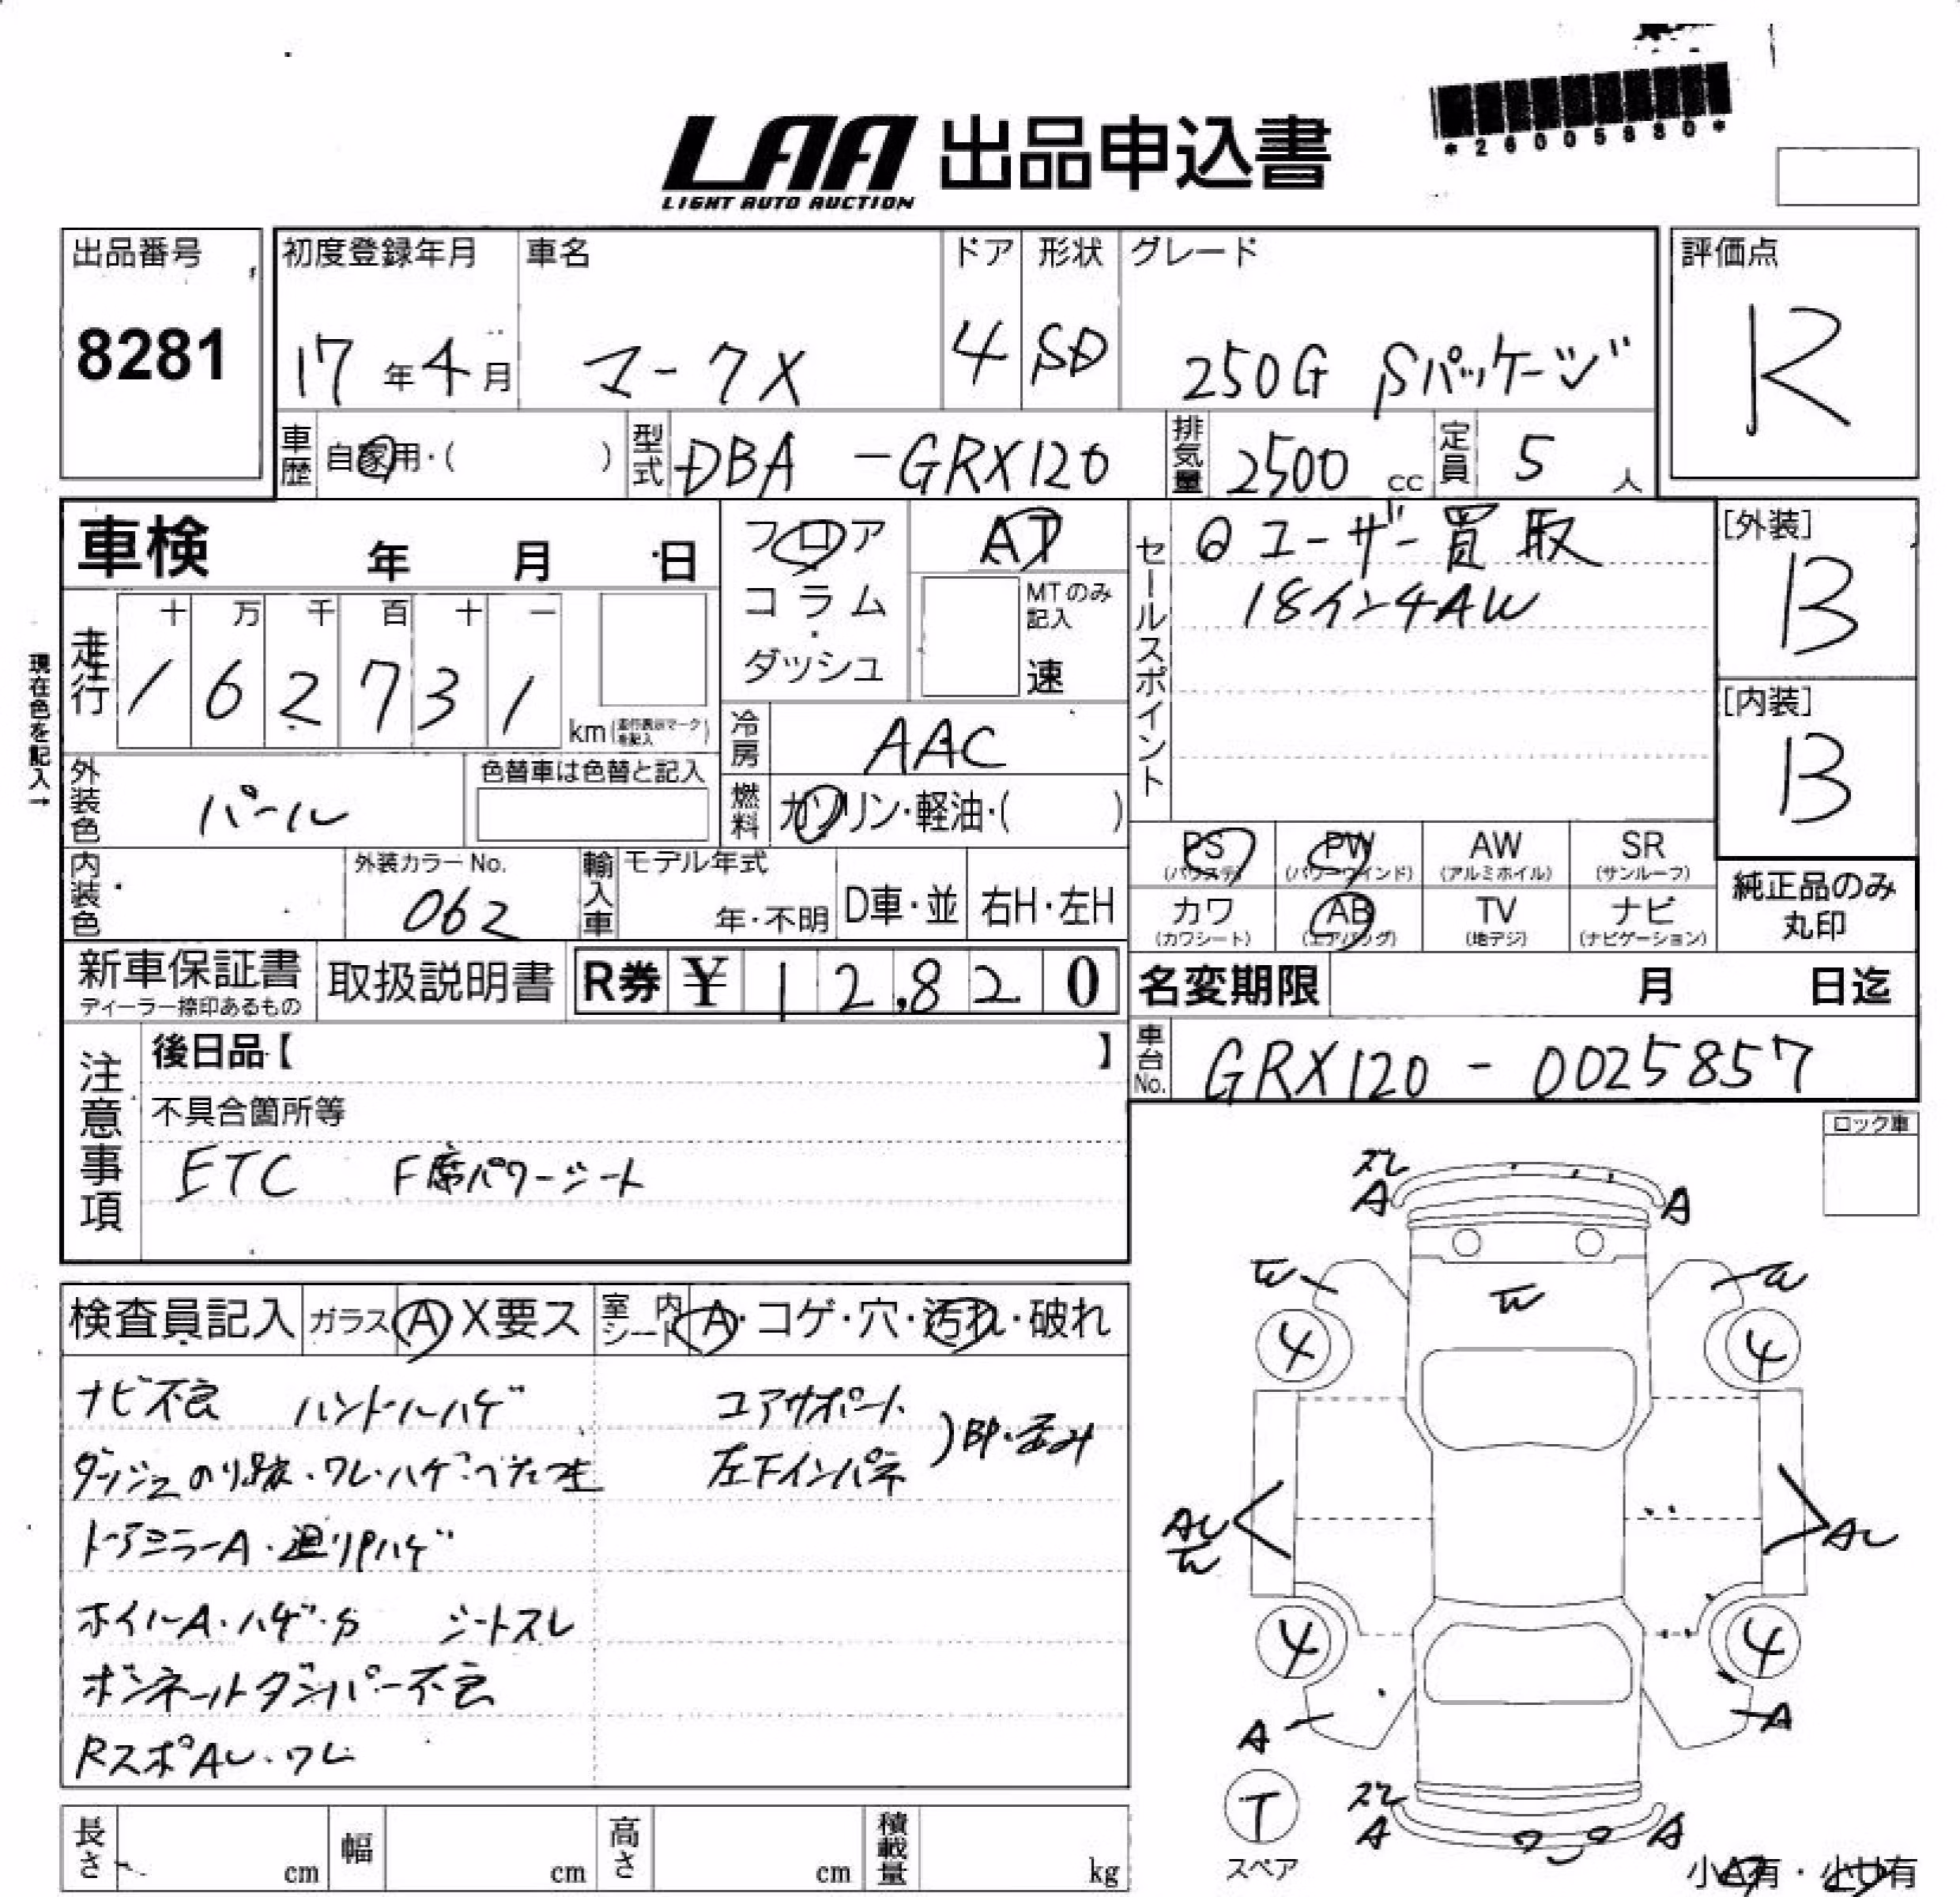 *26005880*
LAA 出品申込書
LIGHT AUTO AUCTION
出品番号
8281
初度登録年月
17年4月
車名
マークX
ドア
4
形状
SD
グレード
250G Sパッケージ
評価点
R
車歴 自家用・( )
型式 DBA -GRX120
排気量 2500 cc
定員 5 人
車検 年 月 日
フロア
コラム
ダッシュ
AT
MTのみ記入
速
セールスポイント
◎ユーザー買取
18インチAW
[外装]
B
[内装]
B
現在色を記入→
走行
十 万 千 百 十 一
1 6 2 7 3 1
km(走行表示マークを記入)
冷房 AAC
燃料 ガソリン・軽油・( )
外装色 パール
色替車は色替と記入
内装色
外装カラーNo.
062
輸入車
モデル年式
年・不明
D車・並
右H・左H
PS
(パワステ)
PW
(パワーウィンド)
AW
(アルミホイル)
SR
(サンルーフ)
カワ
(カワシート)
AB
(エアバッグ)
TV
(地デジ)
ナビ
(ナビゲーション)
純正品のみ
丸印
新車保証書
ディーラー捺印あるもの
取扱説明書
R券 ¥ 12,820
名変期限 月 日迄
車台No. GRX120 - 0025857
注意事項
後日品【 】
不具合箇所等
ETC F席パワーシート
ロック車
検査員記入
ガラス A X要ス
室内シート A・コゲ・穴・汚れ・破れ
ナビ不良 ハンドルハゲ
コアサポート
ダッシュのり跡・ワレ・ハゲ・べたつき
左下インパネ
ドアミラーA・廻りPハゲ
ホイルA・ハゲ・カ シートスレ
ボンネットダンパー不良
RスポAU・ワレ
ズレ
A
A
4
4
AU
AU
4
4
A
A
T
スペア
ズレ
A
A
小A有・小U有
長さ cm
幅 cm
高さ cm
積載量 kg